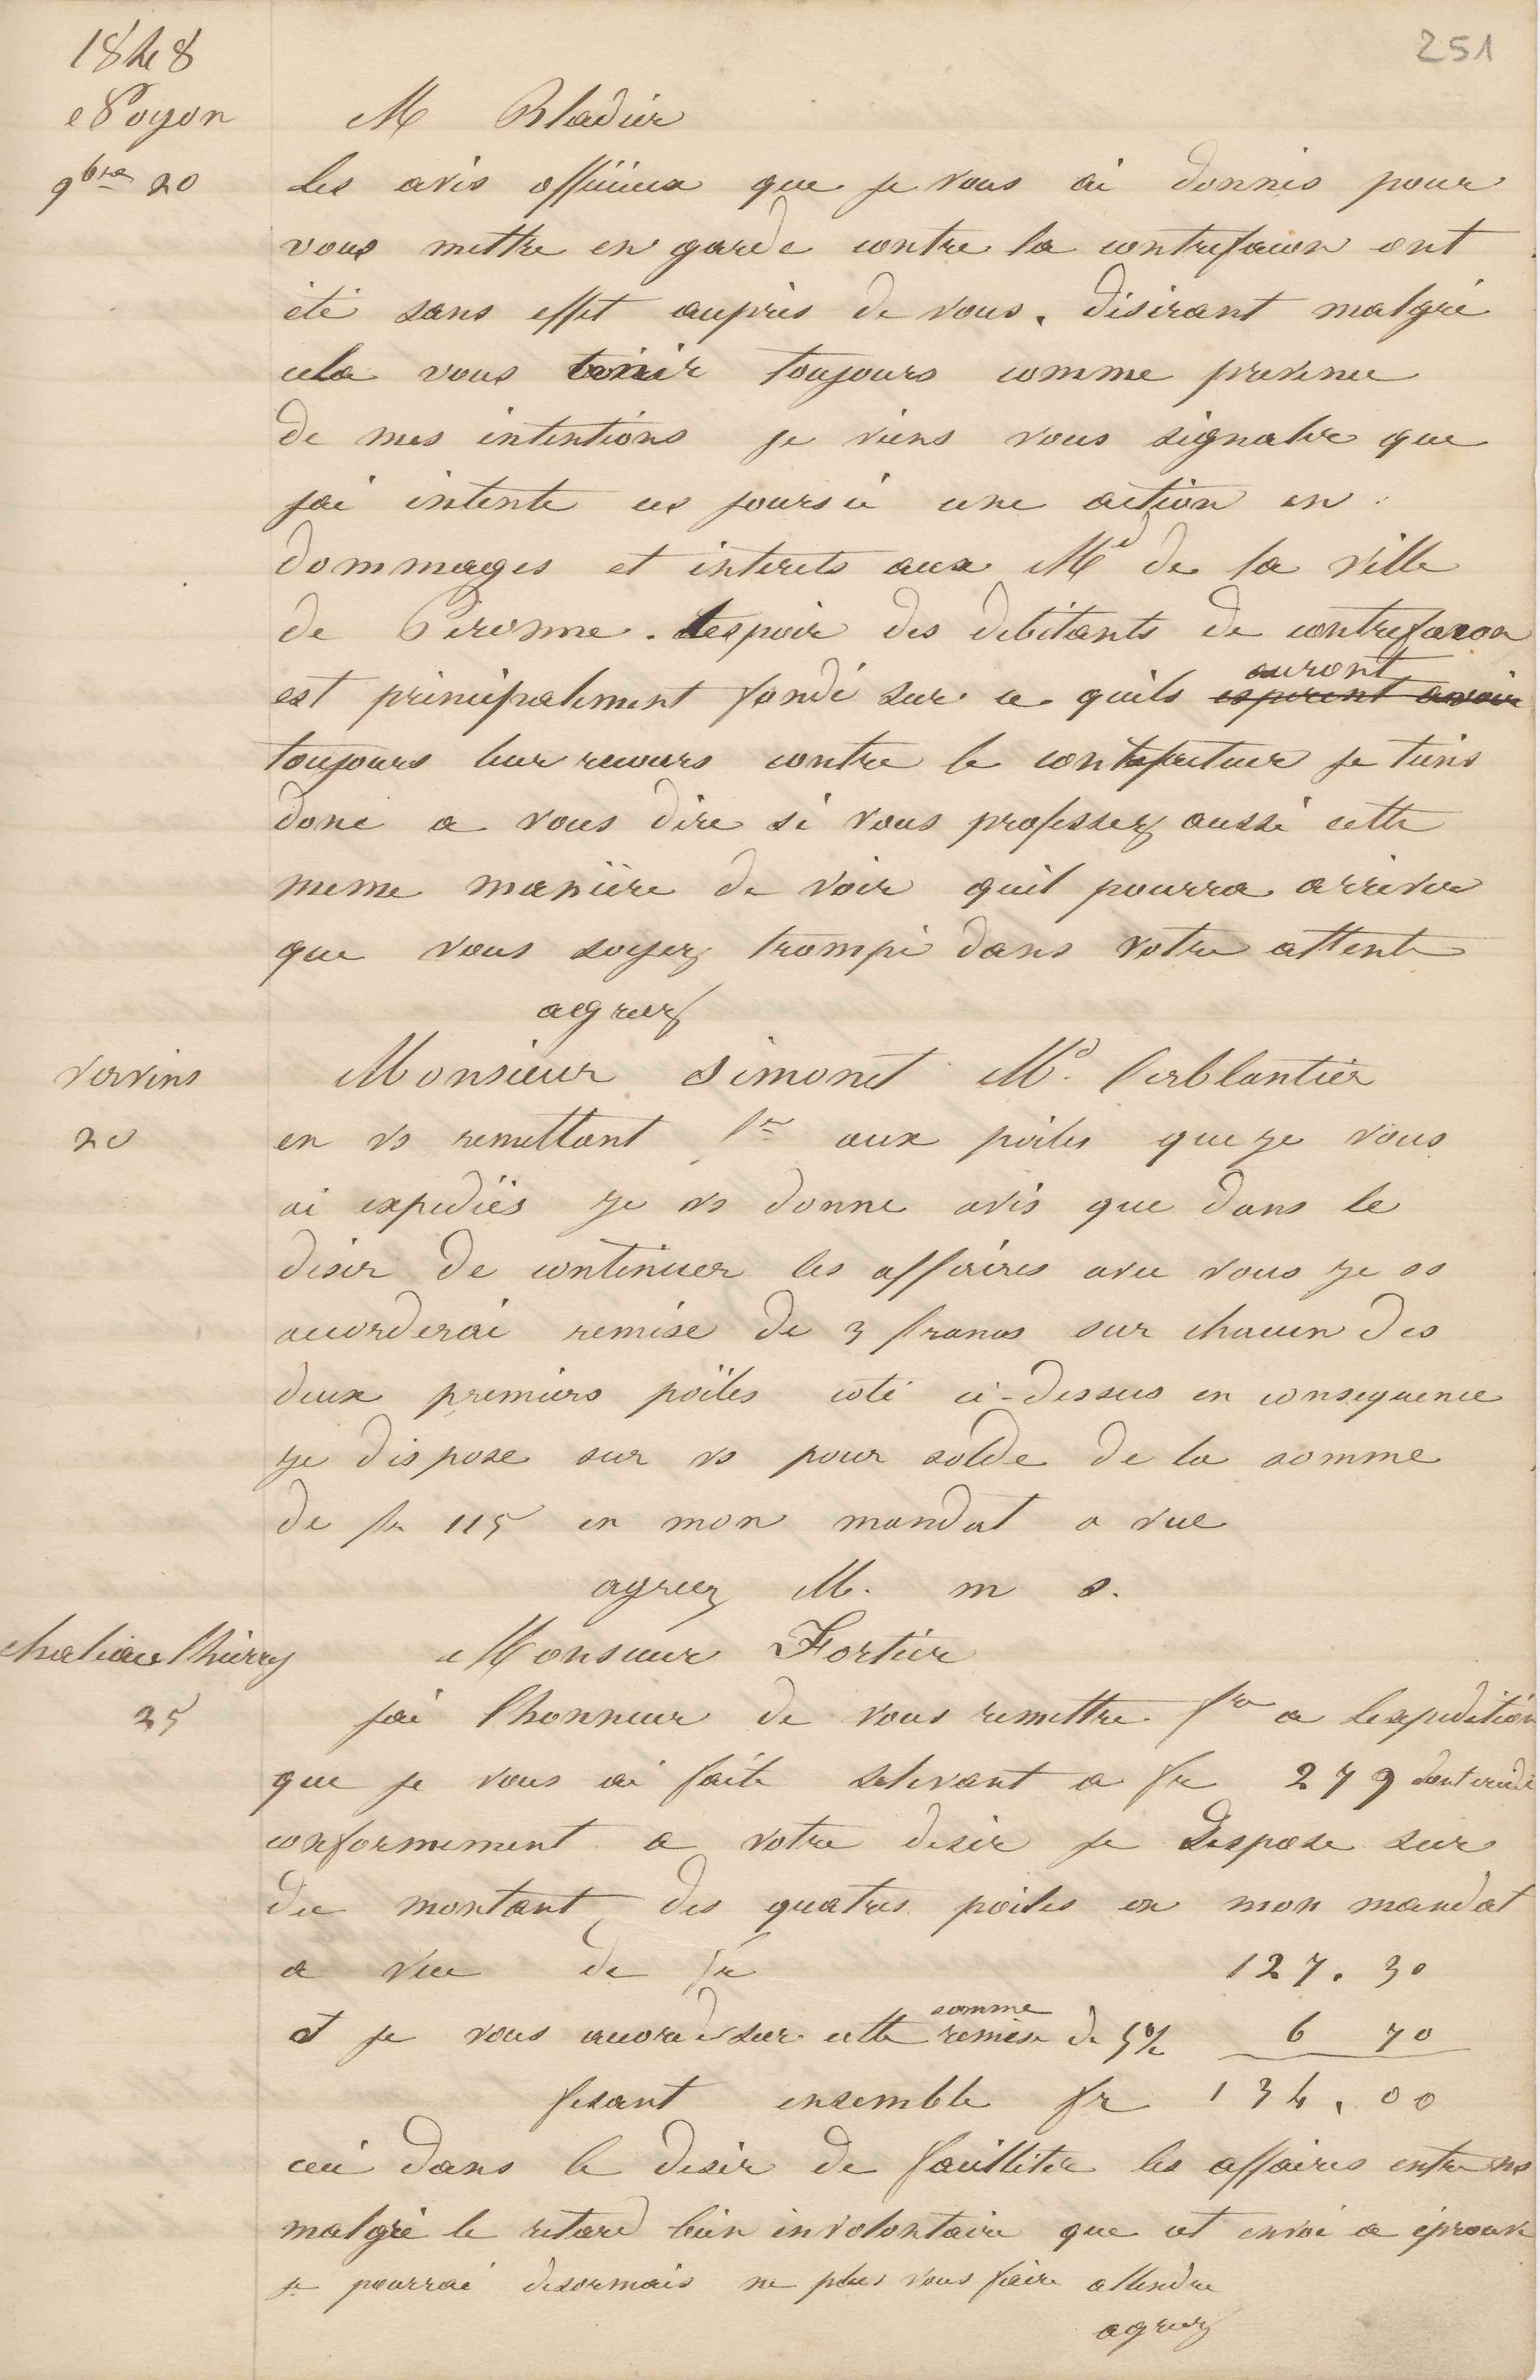 1848
251
Noyon
M Bladier
9bre 20
Les avis officieux que je vous ai donnés pour
vous mettre en garde contre la contrefacon ont
été sans effet auprès de vous. désirant malgré
cela vous tenir toujours comme prevenu
de mes intentions je viens vous signaler que
jai intenté ces jours ci une action en
dommages et interets aux Md de la ville
de Peronne. Lespoir des debitants de contrefacon
est principalement fondé sur ce quils espèrent avoir auront
toujours leur recours contre le contrefacteur je tiens
donc a vous dire si vous professez aussi cette
meme manière de voir quil pourra arriver
que vous soyez trompé dans votre attente
agreez
Vervins
Monsieur Simonet Md ferblantier
20
en vs remettant fre aux poiles que je vous
ai expediés je vs donne avis que dans le
désir de continuer les affaires avec vous je vs
accorderai remise de 3 francs sur chacun des
deux premiers poïles coté ci-dessus en consequence
je dispose sur vs pour solde de la somme
de fr 115 en mon mandat a vue
agreez M. m s.
chateau thierry
Monsieur Fortier
25
jai lhonneur de vous remettre fre a lexpedition
que je vous ai faite selevant a fr 279 dont credit
conformement a votre desir je dispose sur
du montant des quatres poiles en mon mandat
a vue de fr 127.30
et je vous accorde sur cette somme remise de 5% 6 70
fesant ensemble fr 134.00
ceci dans le desir de faciliter les affaires entre ns
malgré le retard bien involontaire que cet envoi a éprouvé
je pourrai desormais ne plus vous faire attendre
agreez